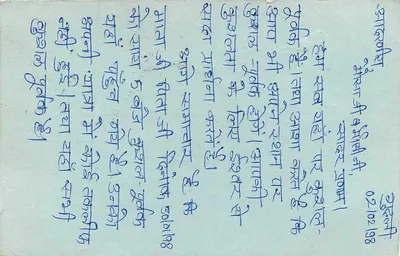 रुड़की
02/02/98
आदरणीय
भैया जी व भाभीजी,
सादर प्रणाम।
हम सब यहां पर कुशल-
पूर्वक हैं। तथा आशा करते हैं कि
आप भी अपने स्थान पर
कुशल पूर्वक होंगे। आपकी
कुशलता के लिए ईश्वर से
सदा प्रार्थना करते हैं।
आगे समाचार है कि
माता जी पिता जी दिनांक 30/01/98
को सायं 5 बजे कुशल पूर्वक
यहां पहुंच गये हैं। उनको
अपनी यात्रा में कोई तकलीफ
नहीं हुई। तथा यहां सभी
कुशल पूर्वक हैं।